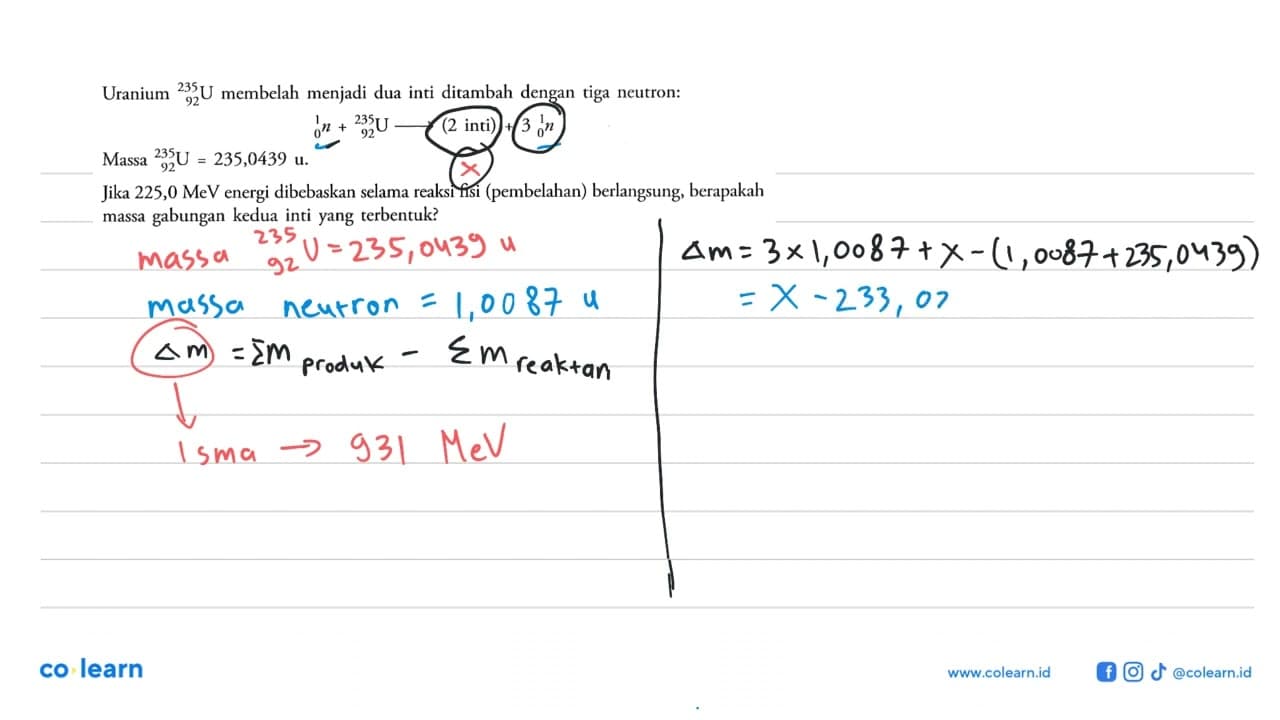 Uranium ²³⁵₉₂U membelah menjadi dua inti ditambah dengan tiga neutron:
¹₀n + ²³⁵₉₂U → (2 inti) + 3 ¹₀n
Massa ²³⁵₉₂U = 235,0439 u.
x
Jika 225,0 MeV energi dibebaskan selama reaksi fisi (pembelahan) berlangsung, berapakah
massa gabungan kedua inti yang terbentuk?
massa ²³⁵₉₂U = 235,0439 u
massa neutron = 1,0087 u
Δm = Σm produk - Σm reaktan
↓
1 sma → 931 MeV
Δm = 3 x 1,0087 + x - (1,0087 + 235,0439)
= x - 233,02
co learn
www.colearn.id
@colearn.id